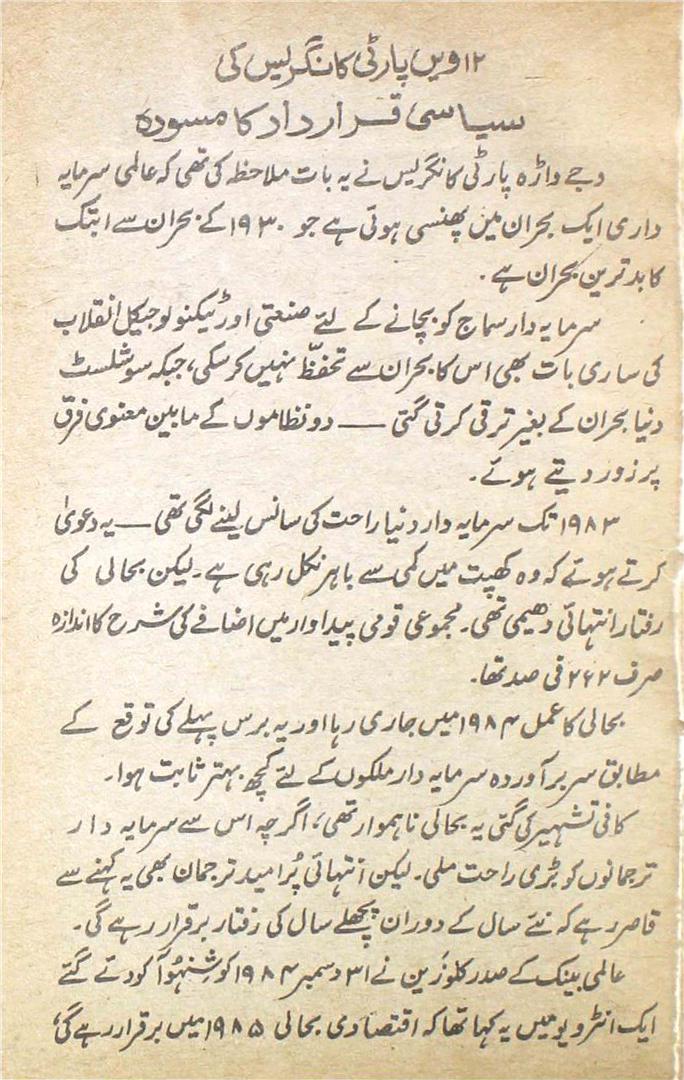 ۱۲ ویں پارٹی کانگریس کی
سیاسی قرارداد کا مسودہ
وجے واڑہ پارٹی کانگریس نے یہ بات ملاحظہ کی تھی کہ عالمی سرمایہ
داری ایک بحران میں پھنسی ہوئی ہے جو ۱۹۳۰ کے بحران سے ابتک
کا بدترین بحران ہے۔
سرمایہ دار سماج کو بچانے کے لئے صنعتی اور ٹیکنولوجیکل انقلاب
کی ساری بات بھی اس کا بحران سے تحفظّ نہیں کر سکی، جبکہ سوشلسٹ
دنیا بحران کے بغیر ترقی کرتی گئی — دو نظاموں کے مابین معنوی فرق
پر زور دیتے ہوئے۔
۱۹۸۳ تک سرمایہ دار دنیا راحت کی سانس لینے لگی تھی — یہ دعویٰ
کرتے ہوئے کہ وہ کھپت میں کمی سے باہر نکل رہی ہے۔ لیکن بحالی کی
رفتار انتہائی دھیمی تھی۔ مجموعی قومی پیداوار میں اضافے کی شرح کا اندازہ
صرف ۲۶۲ فی صد تھا۔
بحالی کا عمل ۱۹۸۴ میں جاری رہا اور یہ برس پہلے کی توقع کے
مطابق سربرآوردہ سرمایہ دار ملکوں کے لئے کچھ بہتر ثابت ہوا۔
کافی تشہیر کی گئی یہ بحالی ناہموار تھی، اگرچہ اس سے سرمایہ دار
ترجمانوں کو بڑی راحت ملی۔ لیکن انتہائی پُرامید ترجمان بھی یہ کہنے سے
قاصر رہے کہ نئے سال کے دوران پچھلے سال کی رفتار برقرار رہے گی۔
عالمی بینک کے صدر کلوزین نے ۳۱ دسمبر ۱۹۸۴ کو شِنہُوآ کو دئے گئے
ایک انٹرویو میں یہ کہا تھا کہ اقتصادی بحالی ۱۹۸۵ میں برقرار رہے گی،